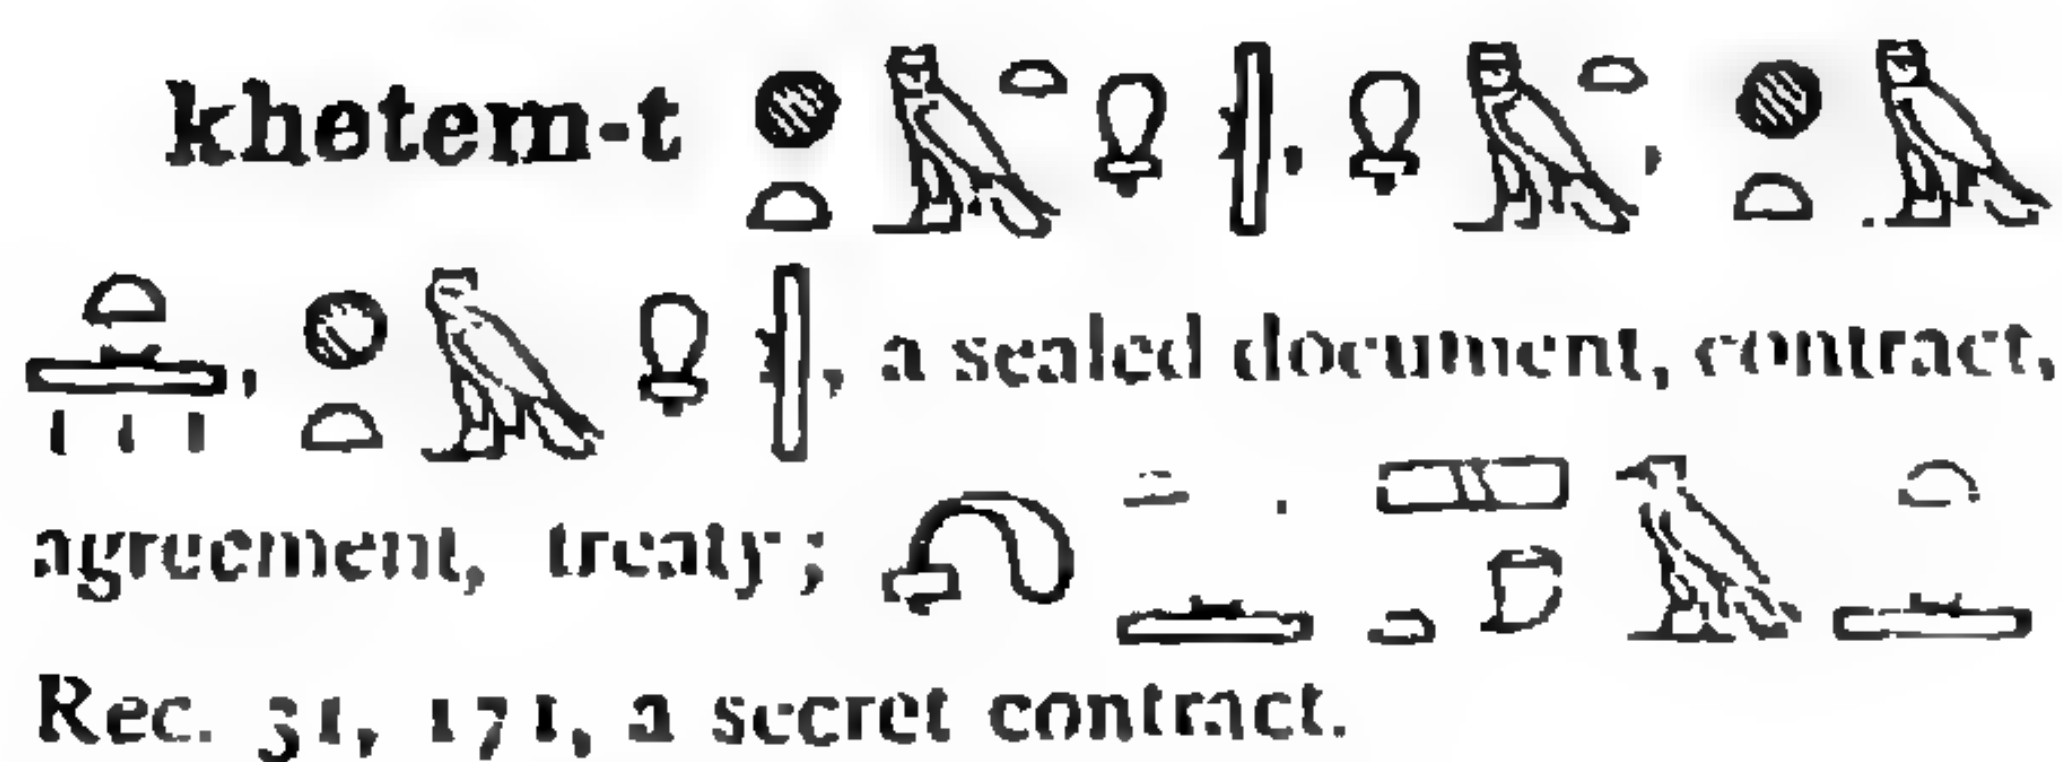 khetem-t 𓐍𓏏𓅓𓏏𓋩𓏜, 𓋩𓅓𓏏, 𓐍𓏏𓅓
𓏏𓏛𓏥, 𓐍𓏏𓅓𓋩𓏜, a sealed document, contract,
agreement, treaty;
Rec. 31, 171, a secret contract.